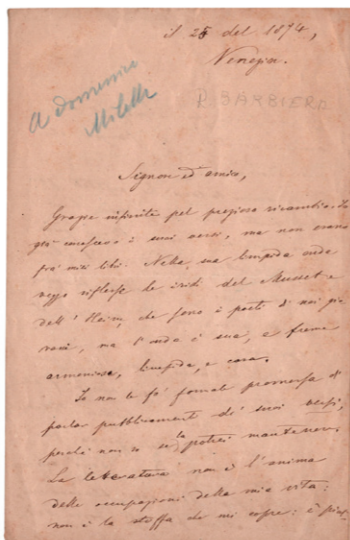 il 25 del 1874,
Venezia.
A Domenico
Milelli
R. BARBIERA
Signore ed amico,
Grazie infinite pel prezioso ricambio. Io
già conoscevo i suoi versi, ma non erano
fra' miei libri. Nella sua limpida onda
veggo riflesse le iridi del Musset e
dell' Heine, che sono i poeti di noi gio-
vani, ma l'onda è sua, e freme
armoniosa, limpida, e cara.
Io non le fo' formale promessa di
parlar pubblicamente de' suoi versi,
perchè non so se la potrei mantenere.
La letteratura non è l'anima
delle occupazioni della mia vita:
non è la stoffa che mi copre: è